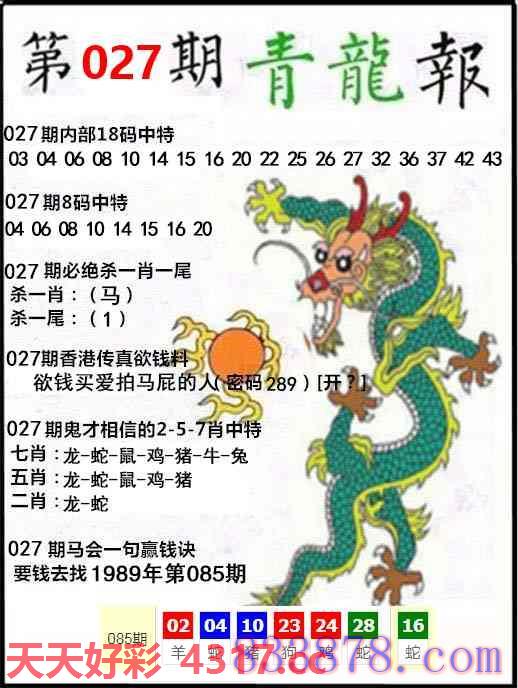 第027期青龍報
027期内部18码中特
03 04 06 08 10 14 15 16 20 22 25 26 27 32 36 37 42 43
027期8码中特
04 06 08 10 14 15 16 20
027 期必绝杀一肖一尾
杀一肖：（马）
杀一尾：（1）
027期香港传真欲钱料
欲钱买爱拍马屁的人（密码289）[开？]
027期鬼才相信的2-5-7肖中特
七肖：龙-蛇-鼠-鸡-猪-牛-兔
五肖：龙-蛇-鼠-鸡-猪
二肖：龙-蛇
027期马会一句赢钱诀
要钱去找1989年第085期
085期 02 04 10 23 24 28 16
羊 蛇 猪 狗 鸡 蛇 蛇
天天好彩 4317.cc
838878.com